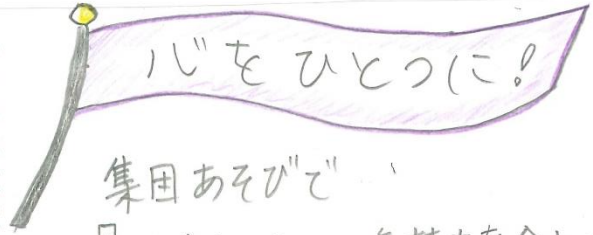 心をひとつに!
集団あそびで